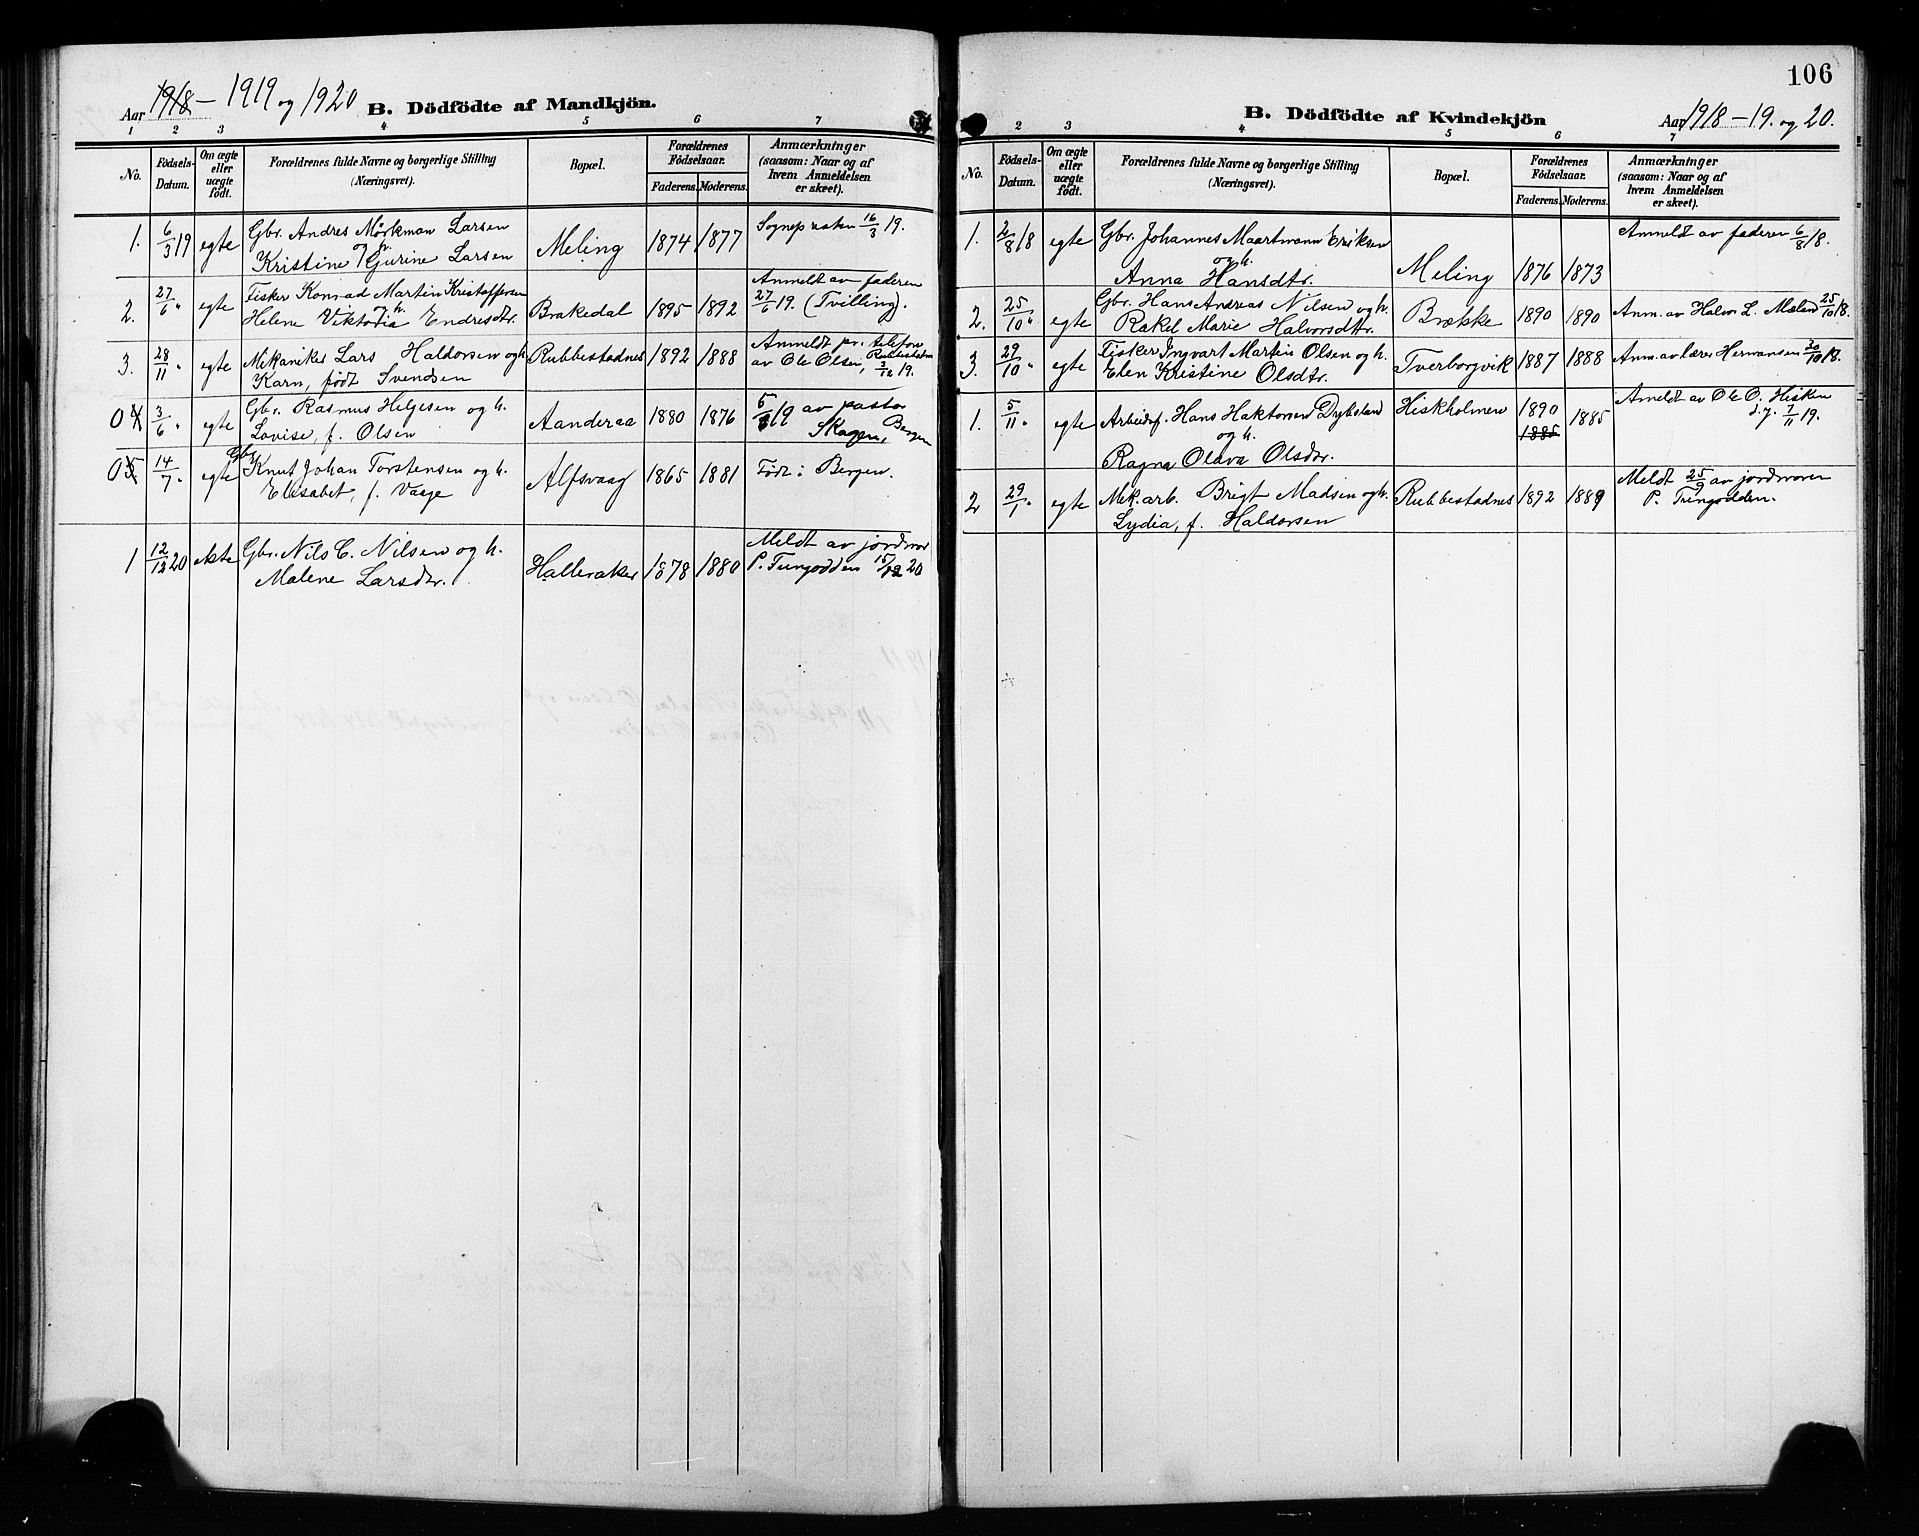 Aar 1918 - 1919 og 1920 B. Dödfödte af Mandkjön.
1 2 3 4 5 6 7
No. Födsels-Datum. Om ægte eller uægte födt. Forældrenes fulde Navne og borgerlige Stilling (Næringsvei). Bopæl. Forældrenes Födselsaar. Faderens. Moderens. Anmærkninger (saasom: Naar og af hvem Anmeldelsen er skeet).
1. 6/3 19 egte Gbr. Andres Mörkman Larsen og h. Meling 1874 1877 16/3 19.
Kristine Gurine Larsen
2. 27/6 " egte Fisker Konrad Martin Kristoffersen og h. Brakedal 1895 1892 Anmeldt av faderen
Helene Viktoria Endresdtr. 27/6 19. (Tvilling).
3. 28/11 " egte Mekaniker Lars Haldorsen og h. Rubbestadnes 1892 1888 Anmeldt pr. telefon
Karn, födt Svendsen av Ole Olsen, Rubbestadnes 3/12 19.
04 3/6 " egte Gbr. Rasmus Helgesen og h. Aanderaa 1880 1876 19 av pastor
Lovise, f. Olsen Skagen, Bergen
05 14/7 " egte Gbr. Knut Johan Torstensen og h. Alfsvaag 1865 1881 Födt i Bergen.
Elisabet, f. Vaage
1 12/12 20 ekte Gbr. Nils C. Nilsen og h. Halleraker 1878 1880 Meldt av jordmor
Malene Larsdr. P. Tungodden 15/12 20
106
B. Dödfödte af Kvindekjön Aar 1918 - 19. og 20.
2 3 4 5 6 7
No. Födsels-Datum. Om ægte eller uægte födt. Forældrenes fulde Navne og borgerlige Stilling (Næringsvei). Bopæl. Forældrenes Födselsaar. Faderens. Moderens. Anmærkninger (saasom: Naar og af hvem Anmeldelsen er skeet).
1. 2/8 18 egte Gbr. Johannes Maartmann Eriksen Anmeldt av faderen 6/8 18.
og h.
Anna Hansdtr. Meling 1876 1873
2. 25/10 " egte Gbr. Hans Andreas Nilsen og h. Brække 1890 1890 Anm. av Halvor L. Mæland 25/10 18.
Rakel Marie Halvorsdtr.
3. 29/10 " egte Fisker Ingvart Martin Olsen og h. Tverborgvik 1887 1888 Anm. av lærer Hermansen 30/10 18.
Elen Kristine Olsdtr.
1. 5/11 " egte Arbeidsf. Hans Haktorsen Dykeland Hiskholmen 1890 1885 1885 Ameldt av Ole O. Hisken
og h. d.y. 7/11 19.
Ragna Olava Olsdr.
2 29/1 " egte Mek. arb. Brigt Madsen og h. Rubbestadnes 1892 1889 Meldt 25/9 av jordmoren
Lydia, f. Haldorsen P. Tungodden.